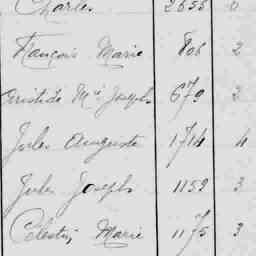 Charles 2655 6
François Marie 806 2
Aristide Mie Joseph 679 2
Jules Auguste 1714 4
Jules Joseph 1159 3
Célestin Marie 1175 3